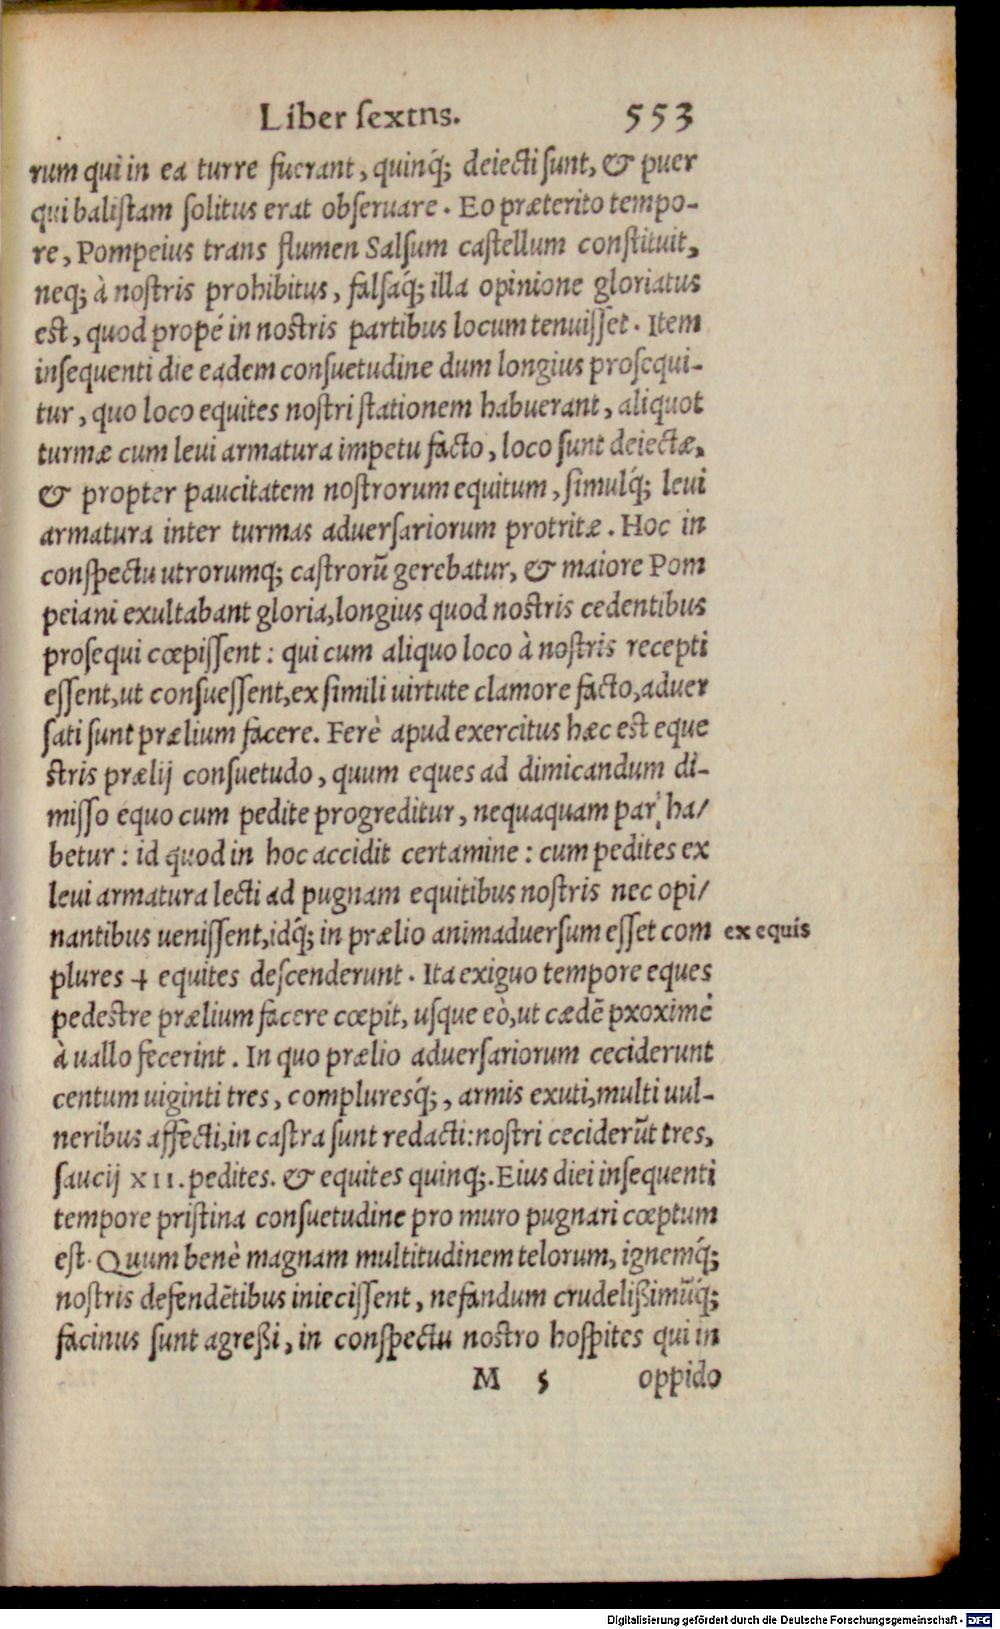 Liber ſextns. 553
rum qui in ea turre fuerant, quinq́; deiecti ſunt, & puer
qui baliſtam ſolitus erat obſeruare. Eo præterito tempo-
re, Pompeius trans flumen Salſum caſtellum conſtituit,
neq; à noſtris prohibitus, falſaq́; illa opinione gloriatus
eſt, quod propé in noſtris partibus locum tenuiſſet. Item
inſequenti die eadem conſuetudine dum longius proſequi-
tur, quo loco equites noſtri ſtationem habuerant, aliquot
turmæ cum leui armatura impetu facto, loco ſunt deiectæ,
& propter paucitatem noſtrorum equitum, ſimulq́; leui
armatura inter turmas aduerſariorum protritæ. Hoc in
conſpectu utrorumq; caſtrorũ gerebatur, & maiore Pom
peiani exultabant gloria, longius quod noſtris cedentibus
proſequi cœpiſſent: qui cum aliquo loco à noſtris recepti
eſſent, ut conſueſſent, ex ſimili uirtute clamore facto, aduer
ſati ſunt prælium facere. Ferè apud exercitus hæc eſt eque
ſtris prælij conſuetudo, quum eques ad dimicandum di-
miſſo equo cum pedite progreditur, nequaquam par ha/
betur: id quod in hoc accidit certamine: cum pedites ex
leui armatura lecti ad pugnam equitibus noſtris nec opi/
nantibus ueniſſent, idq́; in prælio animaduerſum eſſet com ex equis
plures ⸭ equites deſcenderunt. Ita exiguo tempore eques
pedeſtre prælium facere cœpit, uſque eò, ut cædẽ pxoximè
à uallo fecerint. In quo prælio aduerſariorum ceciderunt
centum uiginti tres, compluresq́;, armis exuti, multi uul-
neribus affecti, in caſtra ſunt redacti: noſtri ceciderũt tres,
ſaucij XII. pedites. & equites quinq;. Eius diei inſequenti
tempore priſtina conſuetudine pro muro pugnari cœptum
eſt. Quum benè magnam multitudinem telorum, ignemq́;
noſtris defendẽtibus inieciſſent, nefandum crudelißimũq́;
facinus ſunt agreßi, in conſpectu noſtro hoſpites qui in
M 5 oppido
Digitalisierung gefördert durch die Deutsche Forschungsgemeinschaft - DFG